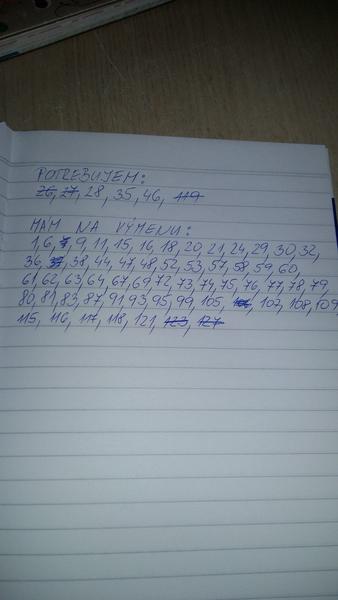 POTREBUJEM:
26, 27, 28, 35, 46, 119
MÁM NA VÝMENU:
1, 6, 7, 9, 11, 15, 16, 18, 20, 21, 24, 29, 30, 32,
36, 37, 38, 44, 47, 48, 52, 53, 57, 58, 59, 60,
61, 62, 63, 64, 67, 69, 72, 73, 74, 75, 76, 77, 78, 79,
80, 81, 83, 87, 91, 93, 95, 99, 105, 107, 108, 109,
115, 116, 117, 118, 121, 123, 127